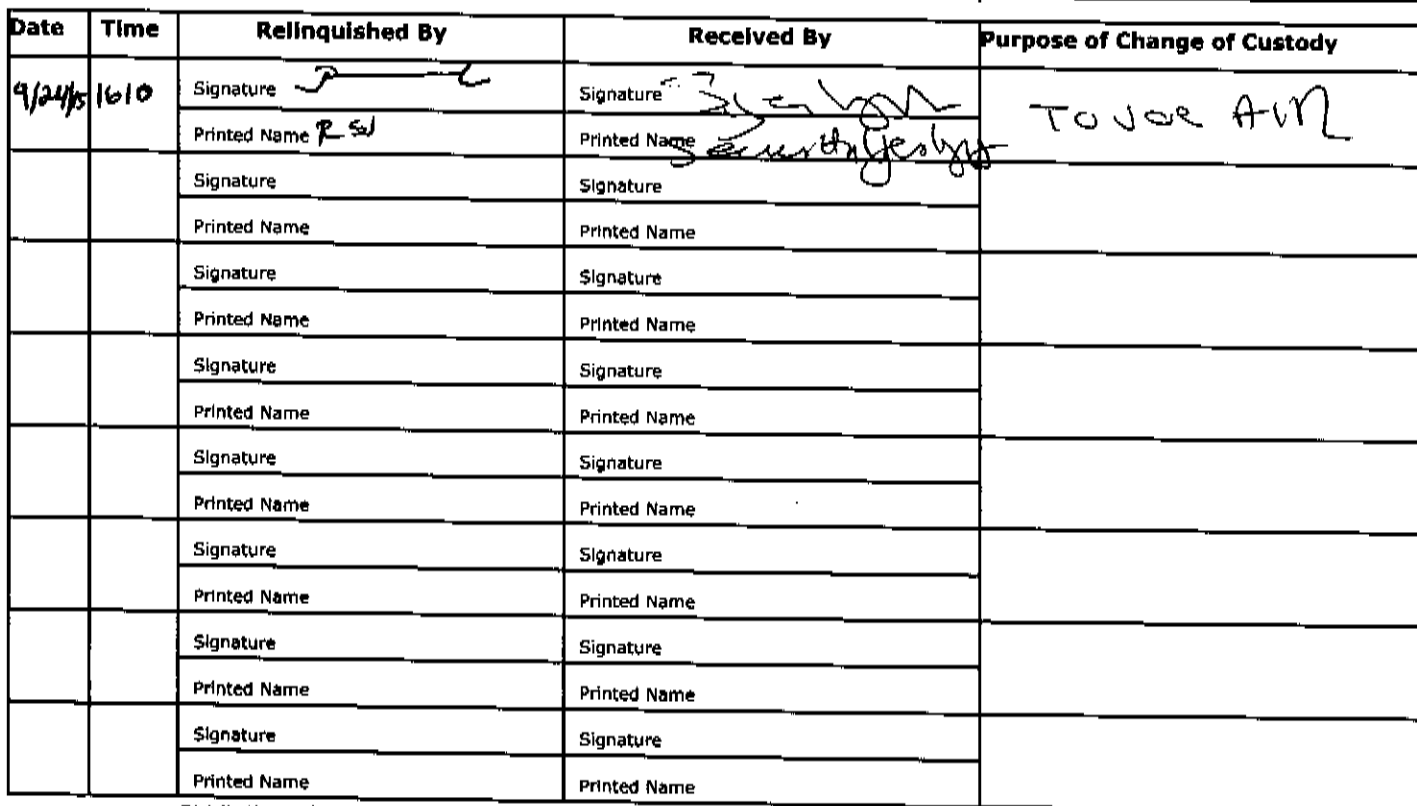 Date Time Relinquished By Received By Purpose of Change of Custody
9/24/15 1610 Signature Signature
Printed Name Printed Name
Signature Signature
Printed Name Printed Name
Signature Signature
Printed Name Printed Name
Signature Signature
Printed Name Printed Name
Signature Signature
Printed Name Printed Name
Signature Signature
Printed Name Printed Name
Signature Signature
Printed Name Printed Name
Signature Signature
Printed Name Printed Name